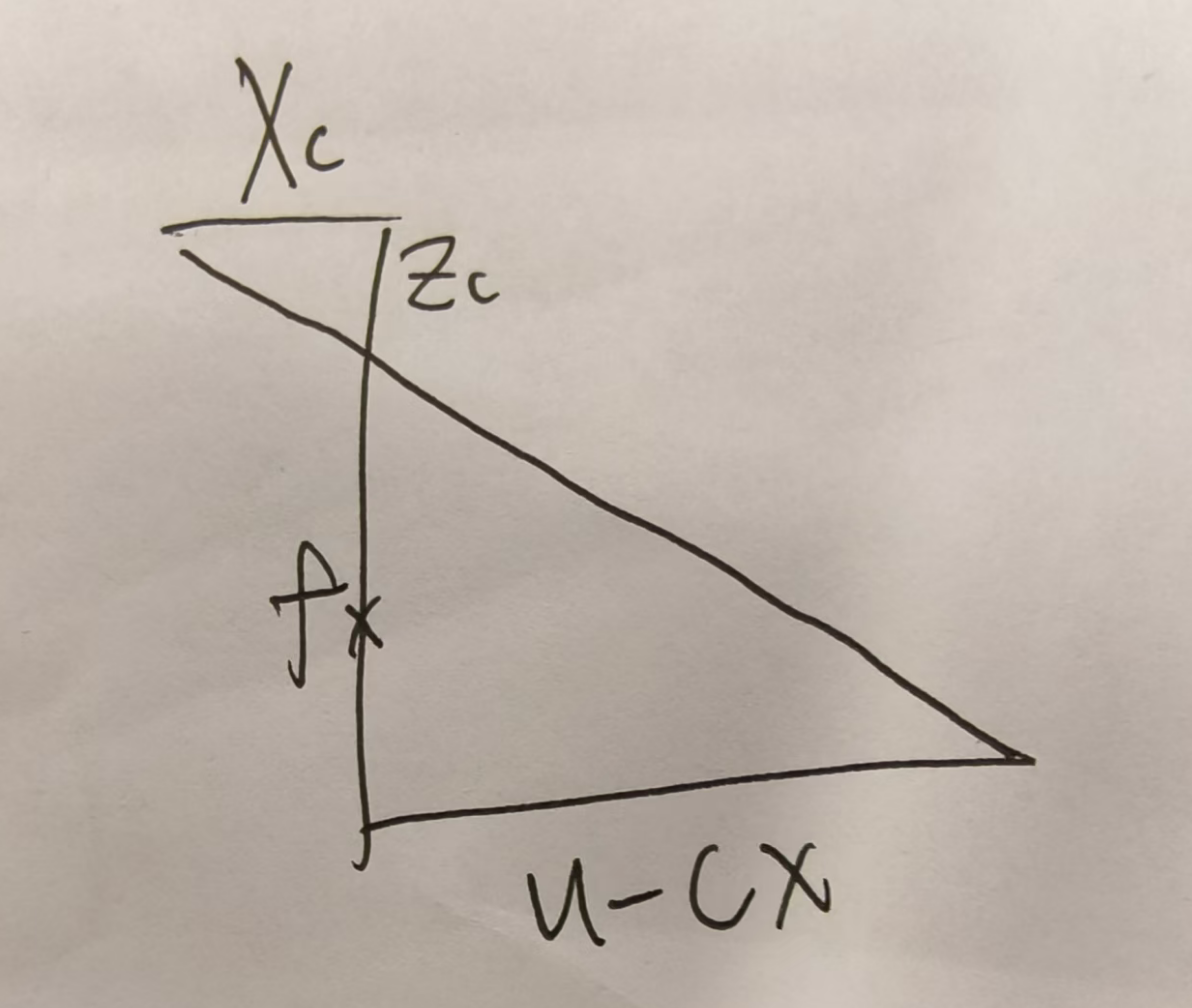 Xc
Zc
fx
u-cx